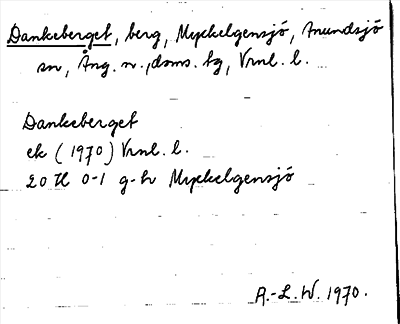 Dankeberget, berg, Myckelgensjö, Anundsjö
sn, Ång. n., doms. tg, Vrnl. l.
Dankeberget
ek (1970) Vrnl. l.
20 H 0-1 g-h Myckelgensjö
A.-L. W. 1970.